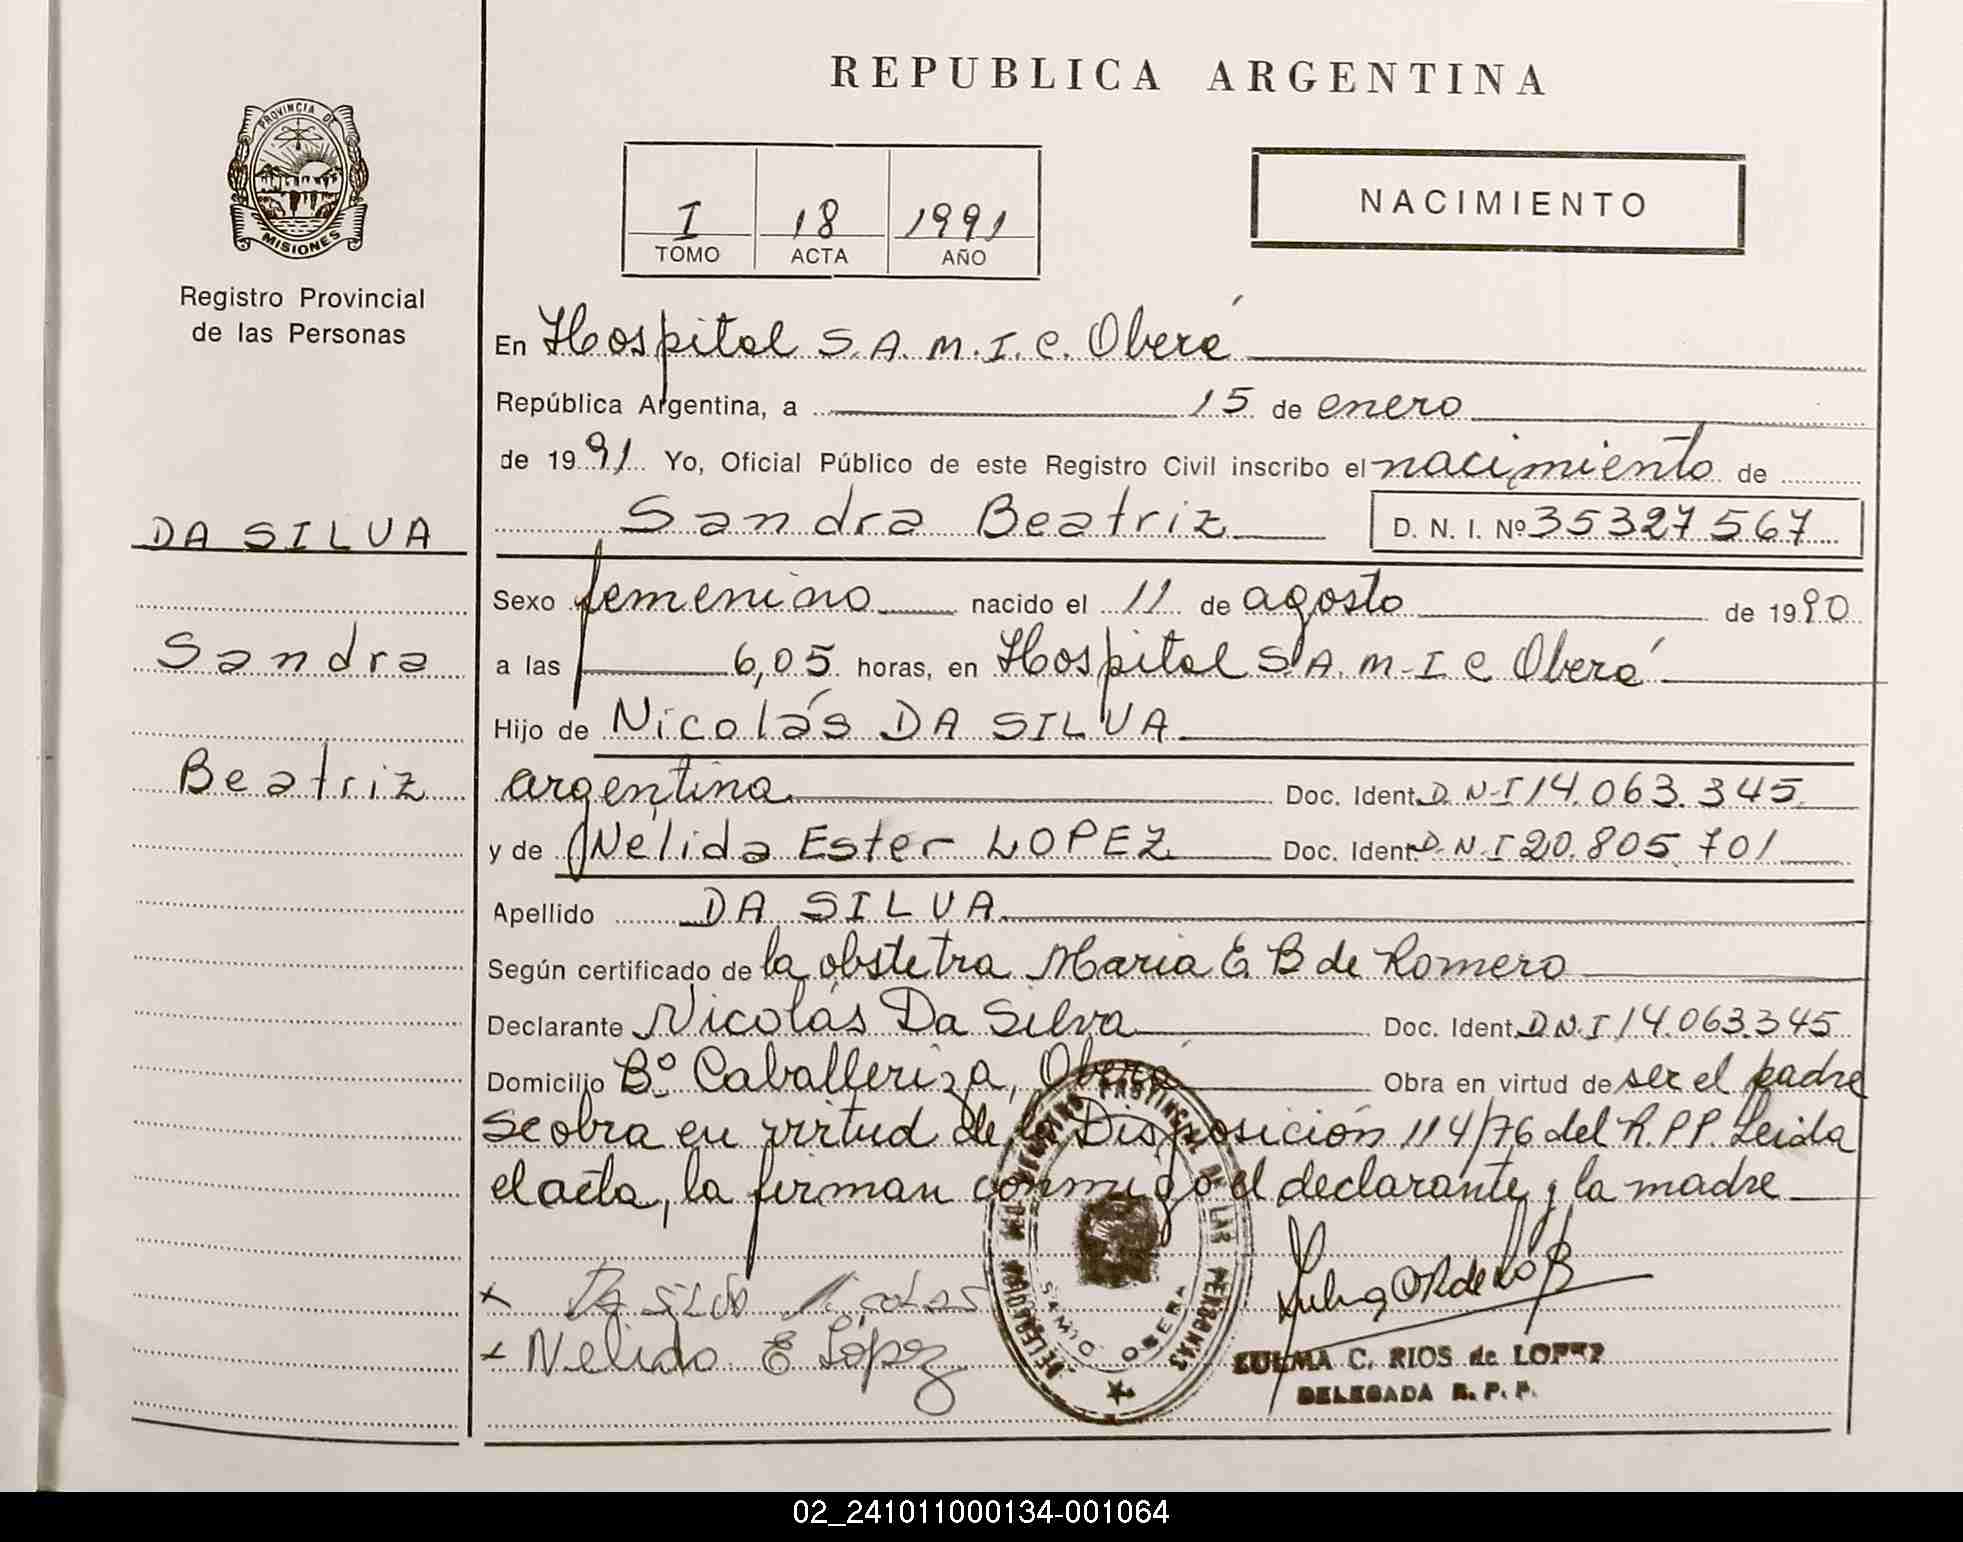 REPUBLICA ARGENTINA
PROVINCIA DE
MISIONES
Registro Provincial
de las Personas
I 18 1991
TOMO ACTA AÑO
NACIMIENTO
En Hospital S.A.M.I.C. Oberá
República Argentina, a 15 de enero
de 1991 Yo, Oficial Público de este Registro Civil inscribo el nacimiento de
Sandra Beatriz D. N. I. Nº 35327567
DA SILVA
Sandra
Beatriz
Sexo femenino nacido el 11 de agosto de 1990
a las 6,05 horas, en Hospital S.A.M.I.C Oberá
Hijo de Nicolás DA SILVA
argentina Doc. Ident. D.N.I 14.063.345
y de Nélida Ester LOPEZ Doc. Ident. D.N.I 20.805.701
Apellido DA SILVA
Según certificado de la obstetra Maria E. B de Romero
Declarante Nicolás Da Silva Doc. Ident. D.N.I 14.063.345
Domicilio Bº Caballeriza, Oberá Obra en virtud de ser el padre
Se obra en virtud de la Disposición 114/76 del R.P.P. Leida
el acta, la firman conmigo el declarante y la madre
x Da Silva Nicolas
x Nelida E López
DELEGACION DEL REGISTRO PROVINCIAL DE LAS PERSONAS
SAMIC OBERA
ZULMA C. RIOS de LOPEZ
DELEGADA R. P. P.
02_241011000134-001064